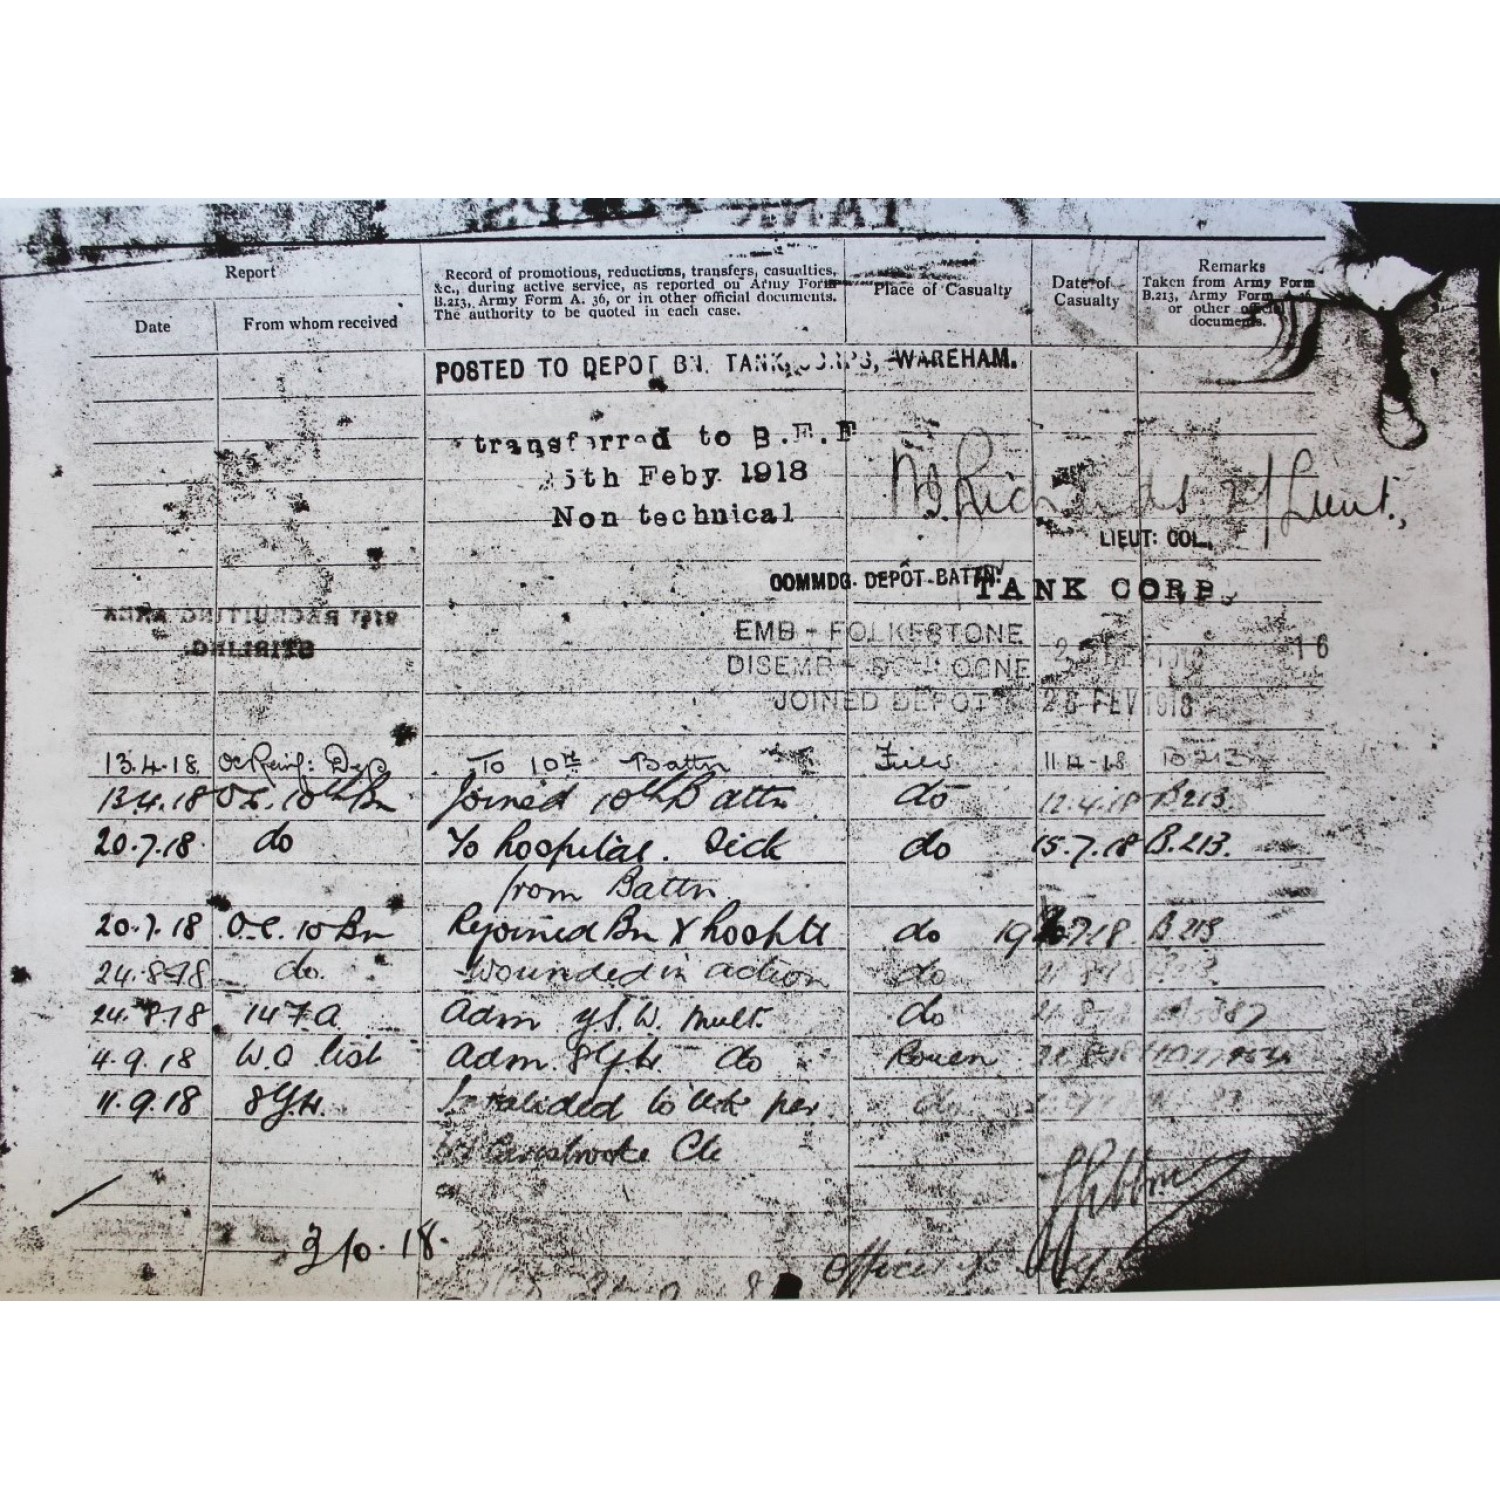 Report
Record of promotions, reductions, transfers, casualties,
&c., during active service, as reported on Army Form
B.213, Army Form A. 36, or in other official documents.
The authority to be quoted in each case.
Place of Casualty
Date of
Casualty
Remarks
Taken from Army Form
B.213, Army Form A. 36
or other official
documents.
Date
From whom received
POSTED TO DEPOT BN. TANK CORPS, WAREHAM.
transferred to B.E.F
25th Feby 1918
Non technical
Richards 2/Lieut.,
LIEUT: COL.,
COMMDG. DEPOT BATTN: TANK CORP.
91ST RECRUITING AREA
STIRLING.
EMB - FOLKESTONE
DISEMB - BOULOGNE 1918 16
JOINED DEPOT 26 FEV 1918
13.4.18. OC Reinf: Dep To 10th Battn Field 11.4.18 B213
13.4.18 O.C. 10th Bn Joined 10th Battn do 12.4.18 B213.
20.7.18. do To hospital. Sick do 15.7.18 B.213.
from Battn
20.7.18 O.C. 10 Bn Rejoined Bn X hospital do 19.7.18. B213
24.8.18 do. Wounded in action do 21.8.18
24.8.18 147.A. Adm G.S.W. Mult. do 21.8.18
4.9.18 W.O list Adm. 8 G.H. do Rouen
11.9.18 8 G.H. Invalided to U.K. per do
Carisbrooke Cle
3/10.18.
Officer